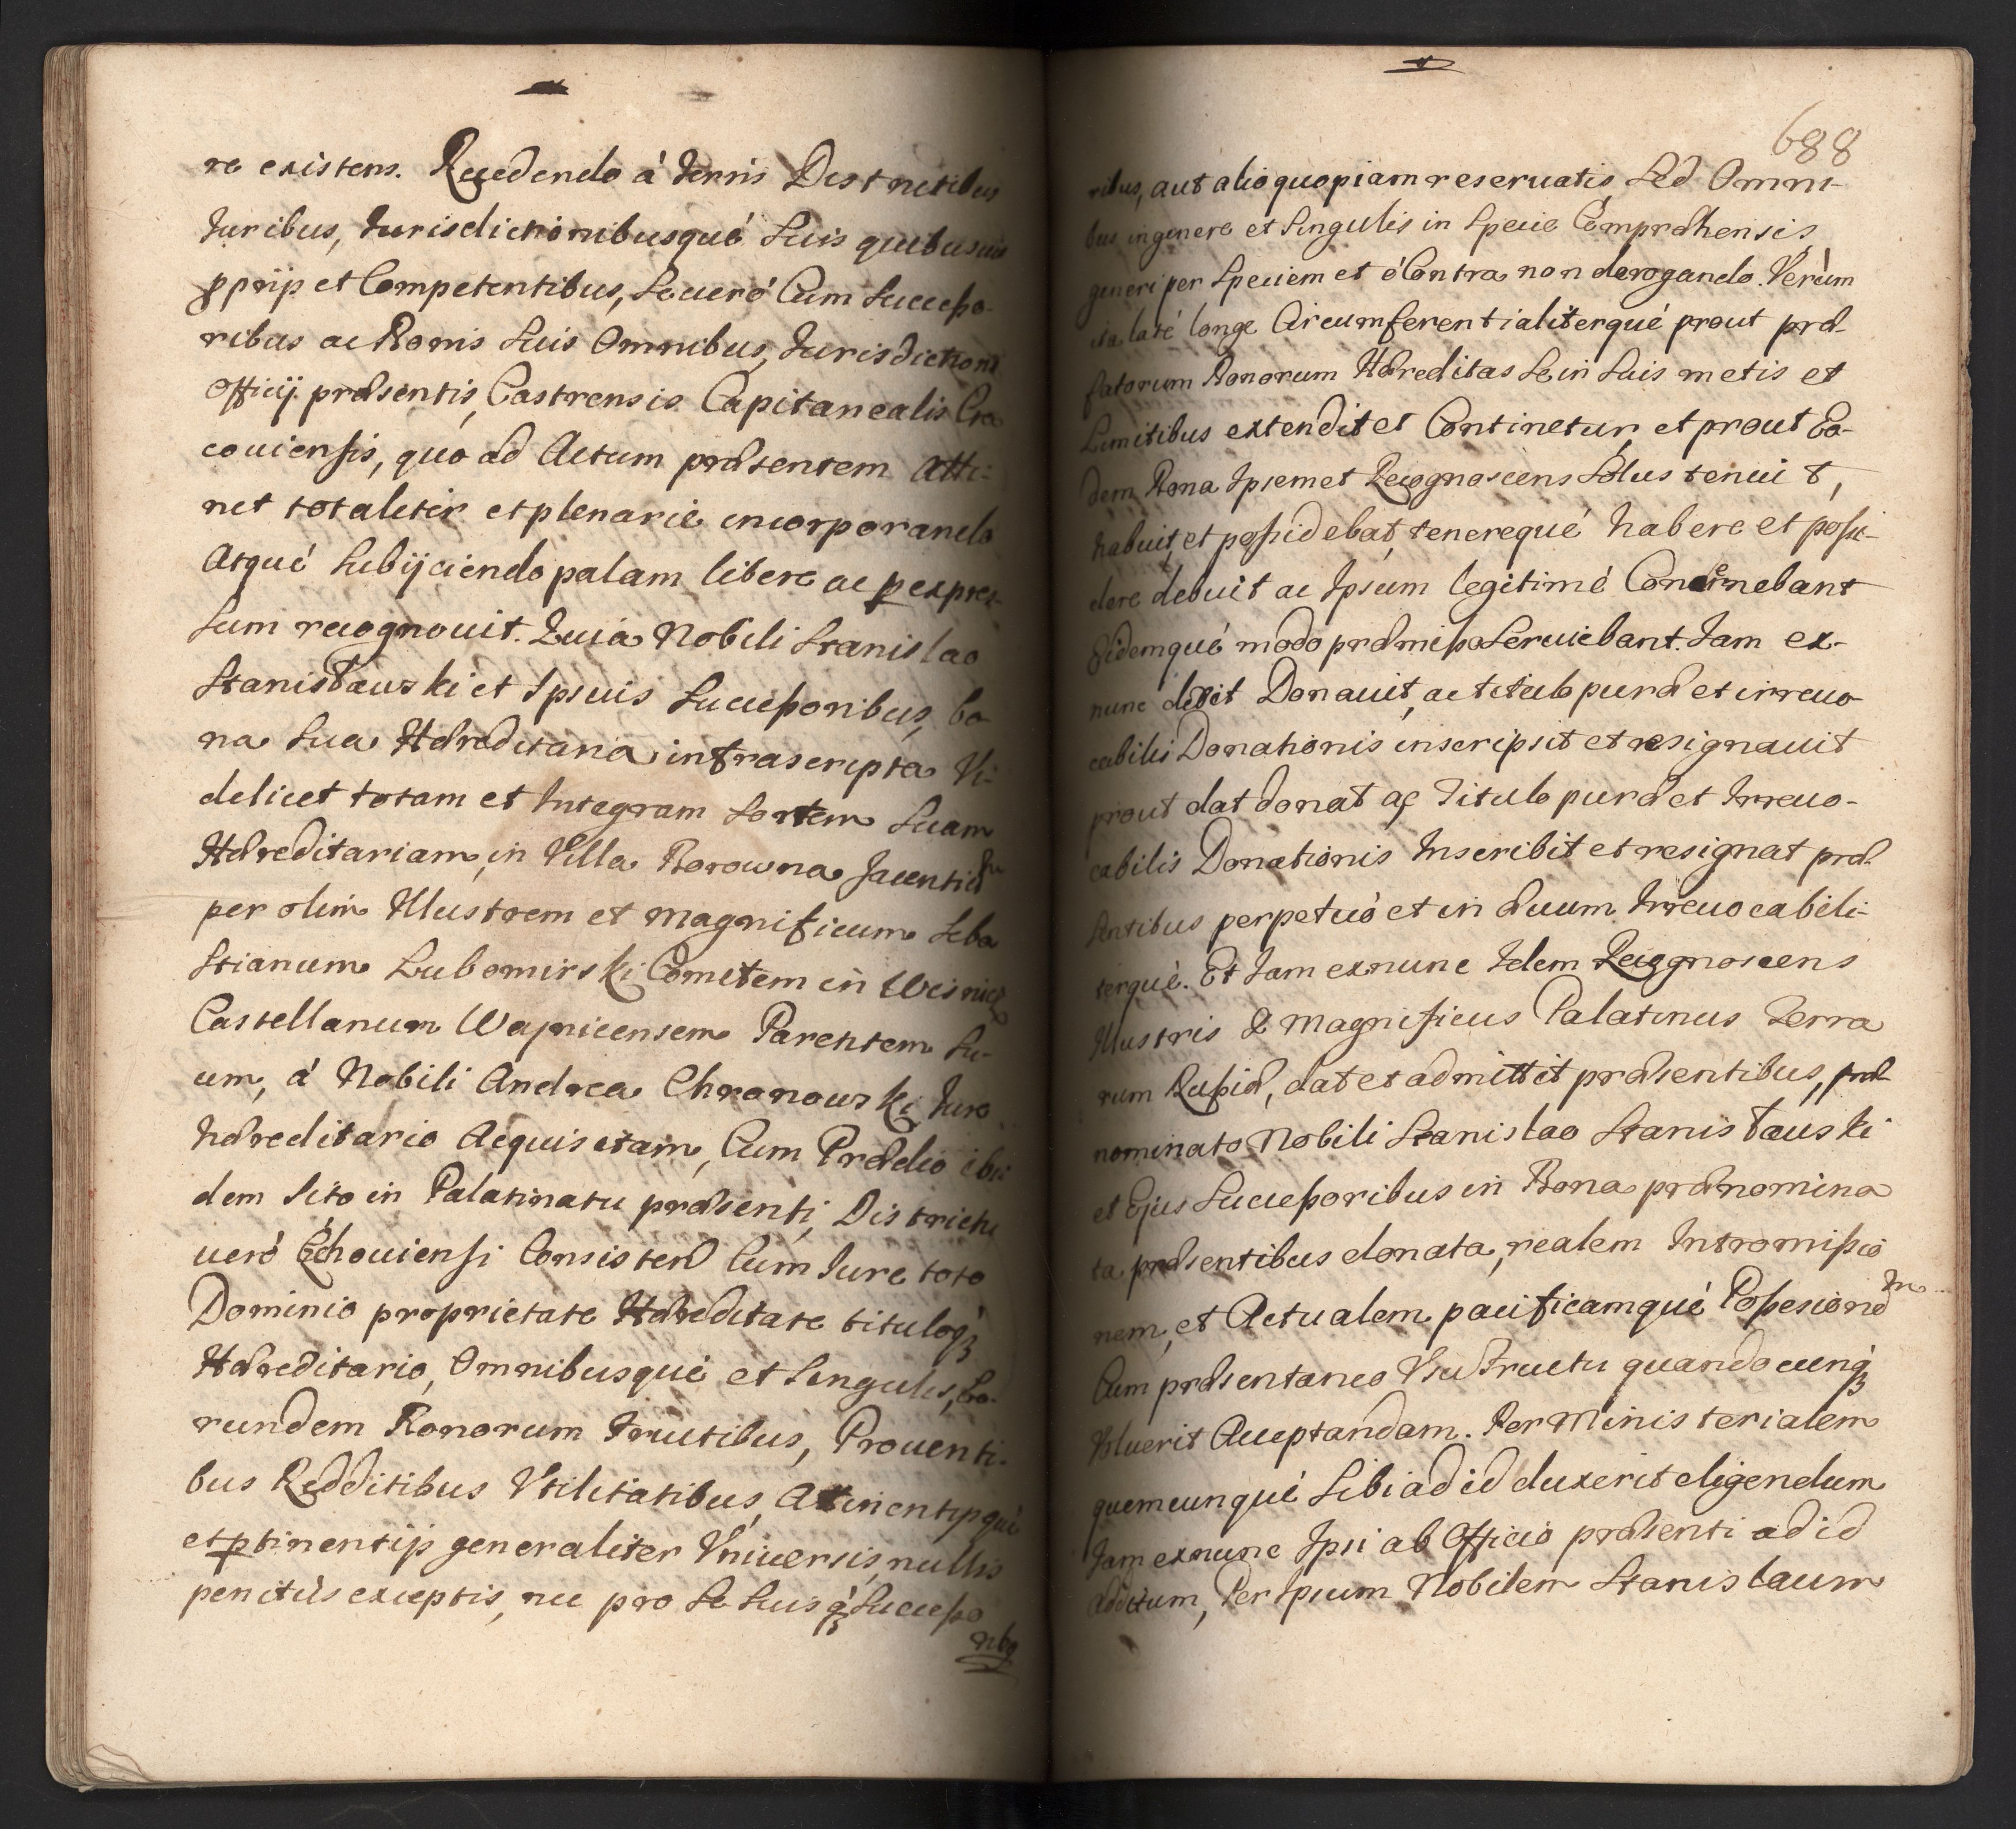 re existens. Recedendo à Terris Districtibus
Iuribus, Iurisdictionibusqué Suis quibusuis
pprijs et Competentibus, Se uerò Cum Successo-
ribus ac Bonis Suis Omnibus, Iurisdictioni
Officij præsentis, Castrensis Capitanealis Cra
couiensis, quò ad Actum præsentem atti-
net totaliter et plenarie incorporando
Atqué Subijciendo palam libere ac p expres-
sum recognouit. Quia Nobili Stanislao
Stanisławski et Ipsius Successoribus, bo-
na Sua Hæreditaria infrascripta Vi-
delicet totam et Integram Sortem Suam
Hæreditariam, in Villa Borowna Jacentem
per olim Illustrem et Magnificum Seba
stianum Lubomirski Comitem in Wisnicz
Castellanum Woynicensem Parentem Su-
um, à Nobili Andrea Chronowski Iure
hæreditario Acquisitam, Cum Prædio ibi
dem Sito in Palatinatu præsenti, Districtu
uerò Cchouiensi Consisten Cum Iure toto
Dominio proprietate Hæreditate tituloq́
Hæreditario, Omnibusqué et Singulis, Eo-
rundem Bonorum Fructibus, Prouenti-
bus Redditibus Vtilitatibus, Attinentijsqué
et ptinentijs generaliter Vniuersis, nullis
penitùs exceptis, nec pro Se Suisq́ Successo
ribq
688
ribus, aut alio quopiam reseruatis, Sed Omni-
bus in genere et Singulis in Specie Comprehensis,
generi per Speciem et è Contra non derogando. Verùm
ita latè longe Circumferentialiterqué prout præ-
fatorum Bonorum Hæreditas Se in Suis metis et
Limitibus extendit et Continetur, et prout Ea-
dem Bona Ipsemet Recognoscens Solus tenuit,
habuit, et possidebat, tenereqúe habere et possi-
dere debuit ac Ipsum legitimè Concernebant
Eidemqué modo præmisso Seruiebant. Iam ex-
nunc dedit Donauit, ac titulo puræ et irreuo-
cabilis Donationis inscripsit et resignauit
prout dat donat ac Titulo puræ et Irreuo-
cabilis Donationis Inscribit et resignat præ-
sentibus perpetuò et in æuum Irreuocabili-
terqué. Et Iam exnunc Idem Recognoscens
Illustris & Magnificus Palatinus Terra
rum Russiæ, dat et admittit præsentibus, præ-
nominato Nobili Stanislao Stanisławski
et Ejus Successoribus in Bona prænomina
ta præsentibus donata, realem Intromissio
nem, et Actualem pacificamqué Possesionem
Cum præsentaneo Vsu Fructu quandocunq́
Voluerit Acceptandam. Per Ministerialem
quemcunqué Sibi ad id duxerit eligendum
Iam exnunc Ipsi ab Officio præsenti ad id
additum, Per Ipsum Nobilem Stanislaum